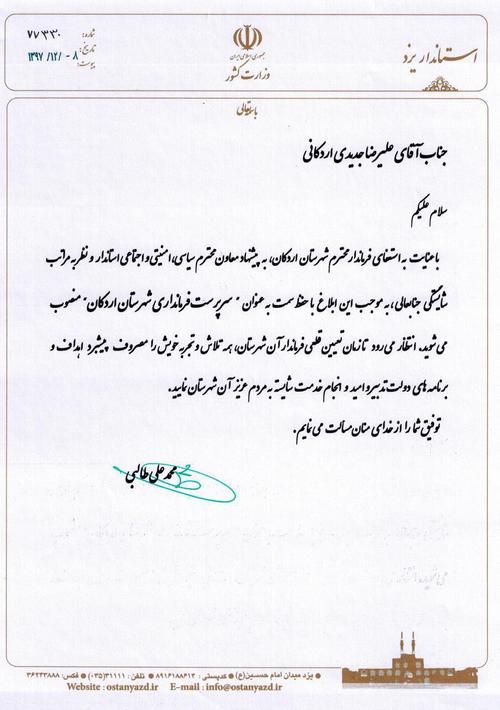 استاندار یزد
جمهوری اسلامی ایران
وزارت کشور
شماره: ۷۷۳۳۰
تاریخ: ۱۳۹۷/۱۲/۰۸
پیوست:
باسمه تعالی
جناب آقای علیرضا جدیدی اردکانی
سلام علیکم
با عنایت به استعفای فرماندار محترم شهرستان اردکان، به پیشنهاد معاون محترم سیاسی، امنیتی و اجتماعی استاندار و نظر به مراتب
شایستگی جنابعالی، به موجب این ابلاغ با حفظ سمت به عنوان "سرپرست فرمانداری شهرستان اردکان" منصوب
می شوید. انتظار می رود تا زمان تعیین قطعی فرماندار آن شهرستان، همه تلاش و تجربه خویش را مصروف پیشبرد اهداف و
برنامه های دولت تدبیر و امید و انجام خدمت شایسته به مردم عزیز آن شهرستان نمایید.
توفیق شما را از خدای منان مسالت می نمایم.
محمد علی طالبی
یزد میدان امام حسین(ع) ● کدپستی: ۸۹۱۶۱۸۸۶۱۳ ● تلفن: ۳۱۱۱۱(۰۳۵) ● فکس: ۳۶۲۴۳۸۸۸
Website : ostanyazd.ir E-mail : info@ostanyazd.ir